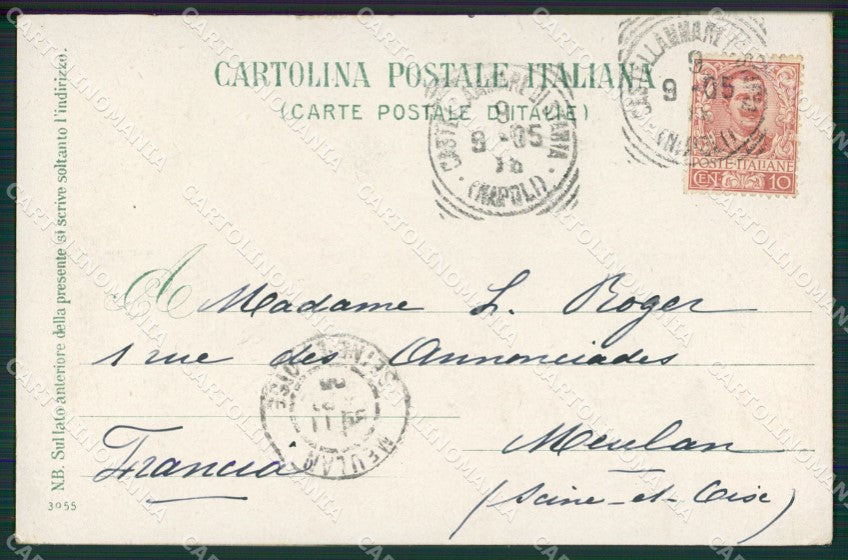 CARTOLINA POSTALE ITALIANA
(CARTE POSTALE D'ITALIE)
CASTELLAMMARE DI STABIA
9
9 -05
(NAPOLI)
CASTELLAMMARE
9
9 -05
(NAPOLI)
POSTE-ITALIANE
CEN 10
A Madame L. Roger
1 rue des Annonciades
Meulan
(Seine-et-Oise)
Francia
SEINE-ET-OISE
MEULAN
N.B. Sul lato anteriore della presente si scrive soltanto l'indirizzo.
3055
CARTOLINOMANIA